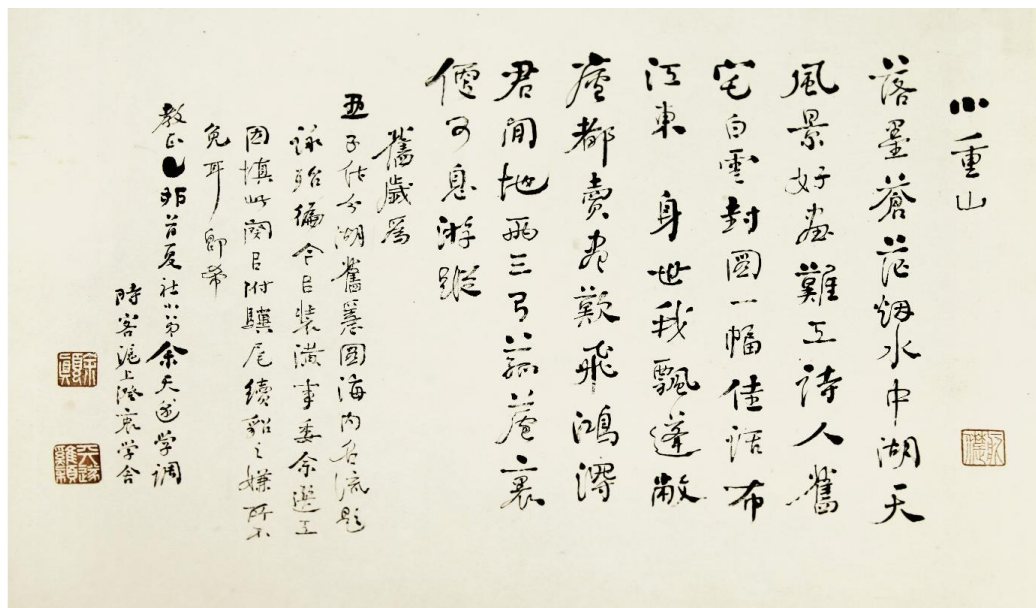 小重山
落墨蒼茫烟水中湖天
風景好畫難工詩人舊
宅白雲封圖一幅佳話布
江東 身世我飄蓬敝
廬都賣盡歎飛鴻
君閒地兩三弓菴裏
便可息游蹤
舊歲爲
亞子作分湖舊隱圖海內名流題
詠殆徧今以裝潢事委余選工
因填此闋以附驥尾續貂之嫌所不
免耳即希
教正乙卯首夏社小弟余天遂學調
時客滬上澄衷學舍